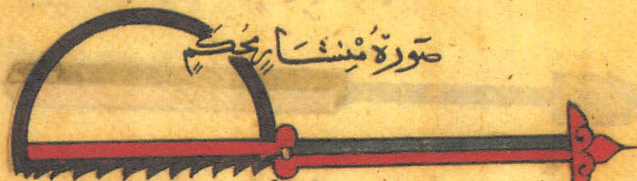 صَورةُ مِنِشَارٍ مُحُكَمٍ